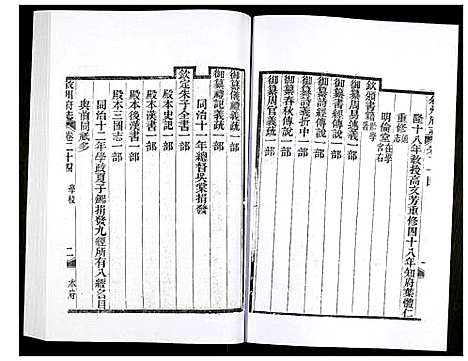 隆十八年敎授高文芳重修四十八年知府葉體仁
重修通志
明倫堂在學宮右
欽頒書籍貯學
御纂周易述義一部
御纂書經傳說一部
御纂詩經傳說一部
御纂詩義折中一部
御纂春秋傳說一部
御纂周官義疏一部
御纂儀禮義疏一部
御纂禮記義疏一部
同治十一年總督吳棠捐發
欽定朱子全書一部
殿本史記一部
殿本漢書一部
殿本後漢書一部
殿本三國志一部
同治十二年學政夏子鍚捐發九經所有八經名目
與前同祇多
敘州府志 卷二十四 學校 二 本府